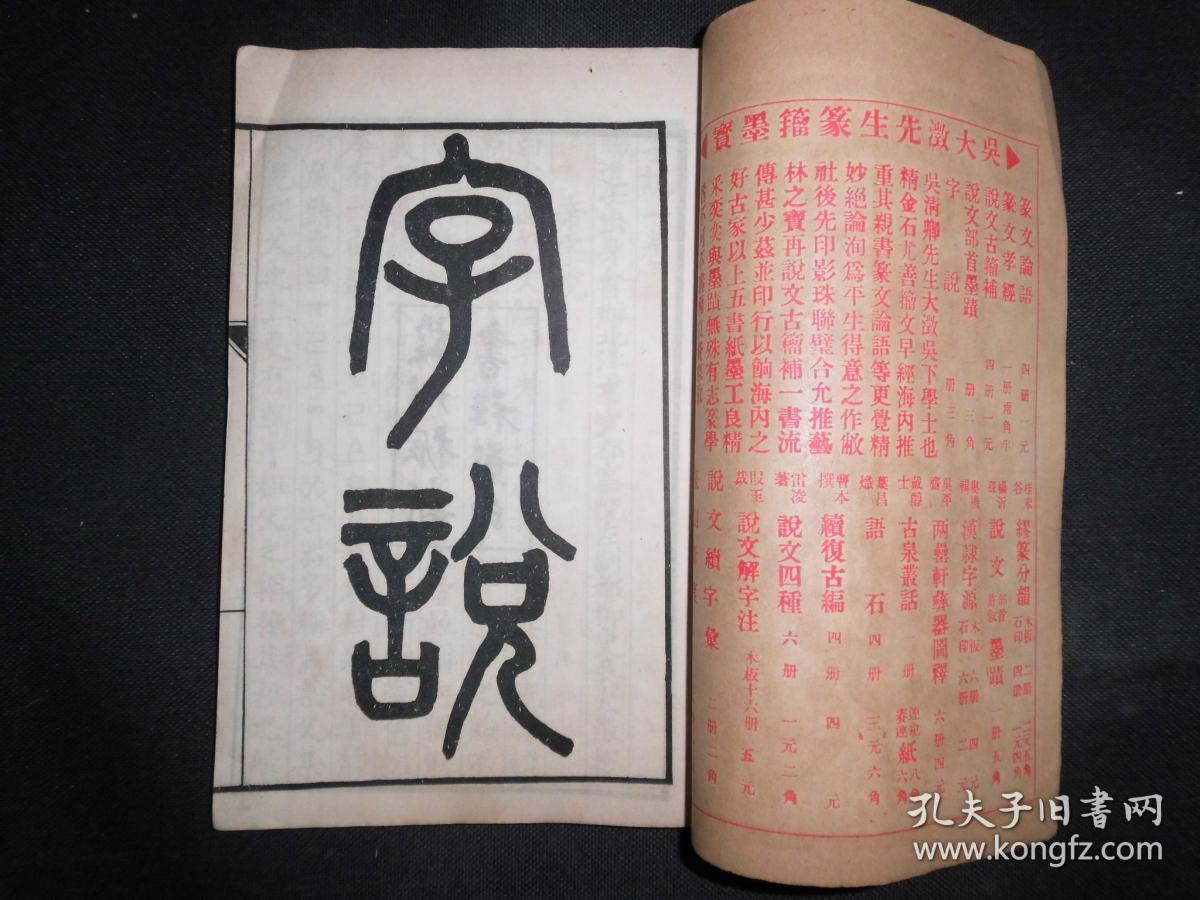 字說
吳大澂先生篆籀墨寶
篆文論語 四册 一元
篆文孝經 一册 兩角半
說文古籀補 四册 一元
說文部首墨蹟 一册 三角
字說 一册 三角
吳淸卿先生大澂吳下學士也
精金石尤善籀文早經海內推
重其親書篆文論語等更覺精
妙絕論洵爲平生得意之作敝
社後先印影珠聯璧合允推藝
林之寶再說文古籀補一書流
傳甚少茲並印行以餉海內之
好古家以上五書紙墨工良精
采奕奕與墨蹟無殊有志篆學
繆篆分韻 木板 二册 二元五角 石印 四册 一元四角
說文部首墨蹟 一册 五角
漢隸字源 木板 六册 四元 石印 六册 二元
兩罍軒彝器圖釋 六册 四元
古泉叢話 册 連紙 八角 六角
葉昌熾 語石 四册 三元六角
曹本撰 續復古編 四册 四元
雷凌著 說文四種 六册 一元二角
段玉裁 說文解字注 木板十六册 五元
說文續字彙 二册 二角
孔夫子旧书网
www.kongfz.com